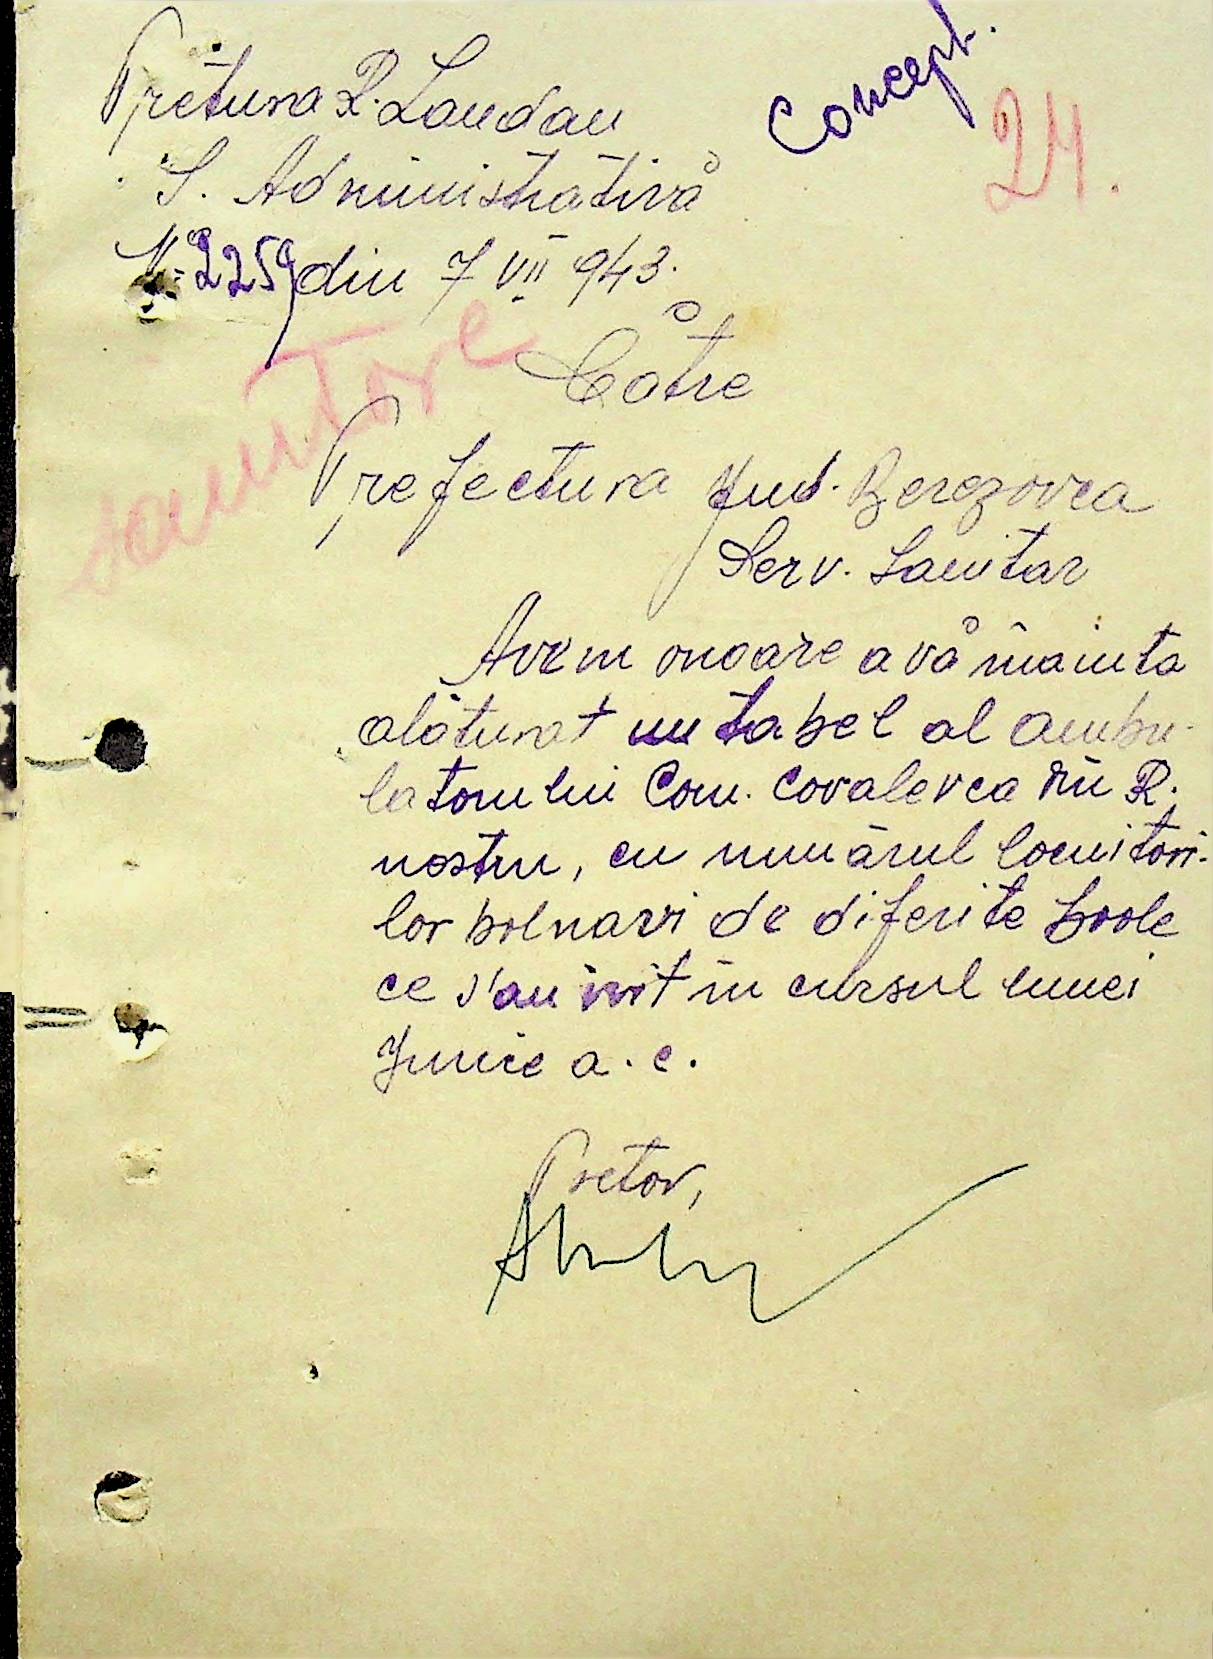 Concept.
24.
Pretura R. Landau
S. Administrativă
Nr. 2259 din 7 VII 943.
sanitare
Către
Prefectura Jud. Berezovca
Serv. Sanitar
Avem onoare a vă înainta
alăturat un tabel al ambu-
latorului Com. Covalevca din R.
nostru, cu numărul locuitori-
lor bolnavi de diferite boole
ce s'au ivit în cursul lunei
Junie a. c.
Pretor,